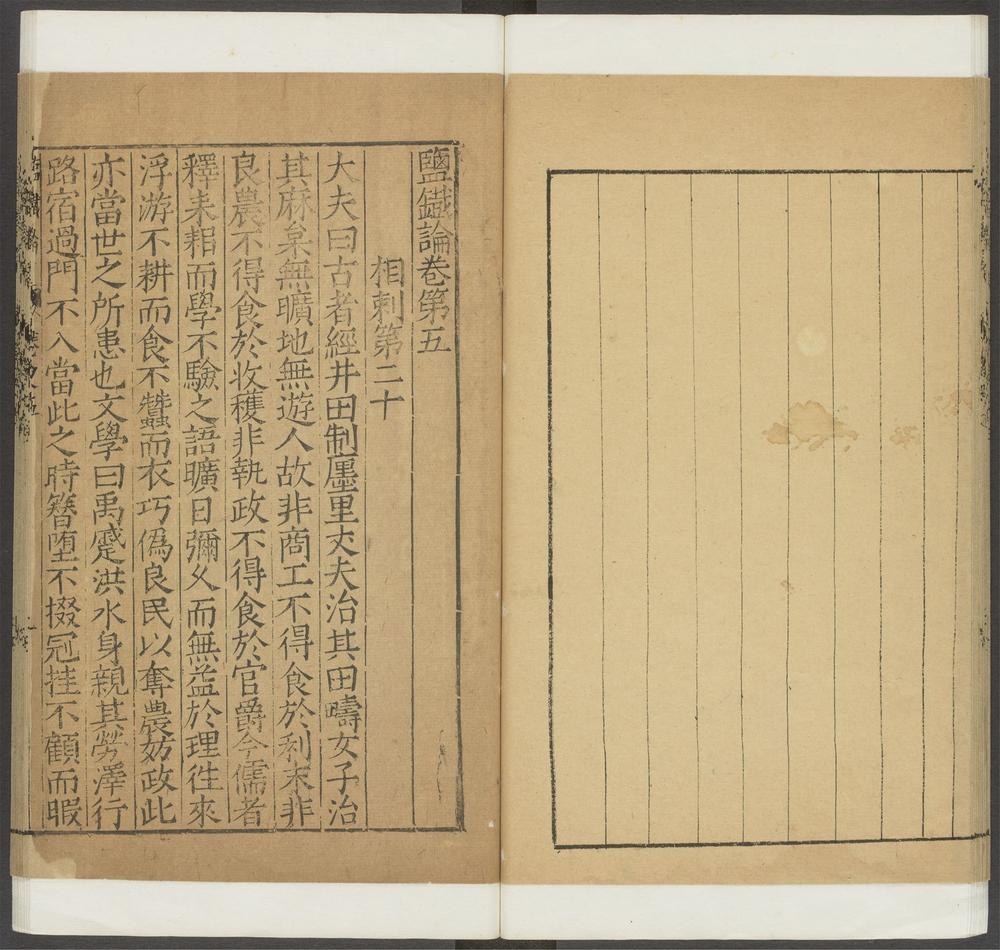 鹽鐵論卷第五
相刺第二十
大夫曰古者經井田制廛里丈夫治其田疇女子治
其麻枲無曠地無遊人故非商工不得食於利末非
良農不得食於收穫非執政不得食於官爵今儒者
釋耒耜而學不驗之語曠日彌久而無益於理徃來
浮游不耕而食不蠶而衣巧偽良民以奪農妨政此
亦當世之所患也文學曰禹慼洪水身親其勞澤行
路宿過門不入當此之時簪墮不掇冠挂不顧而暇